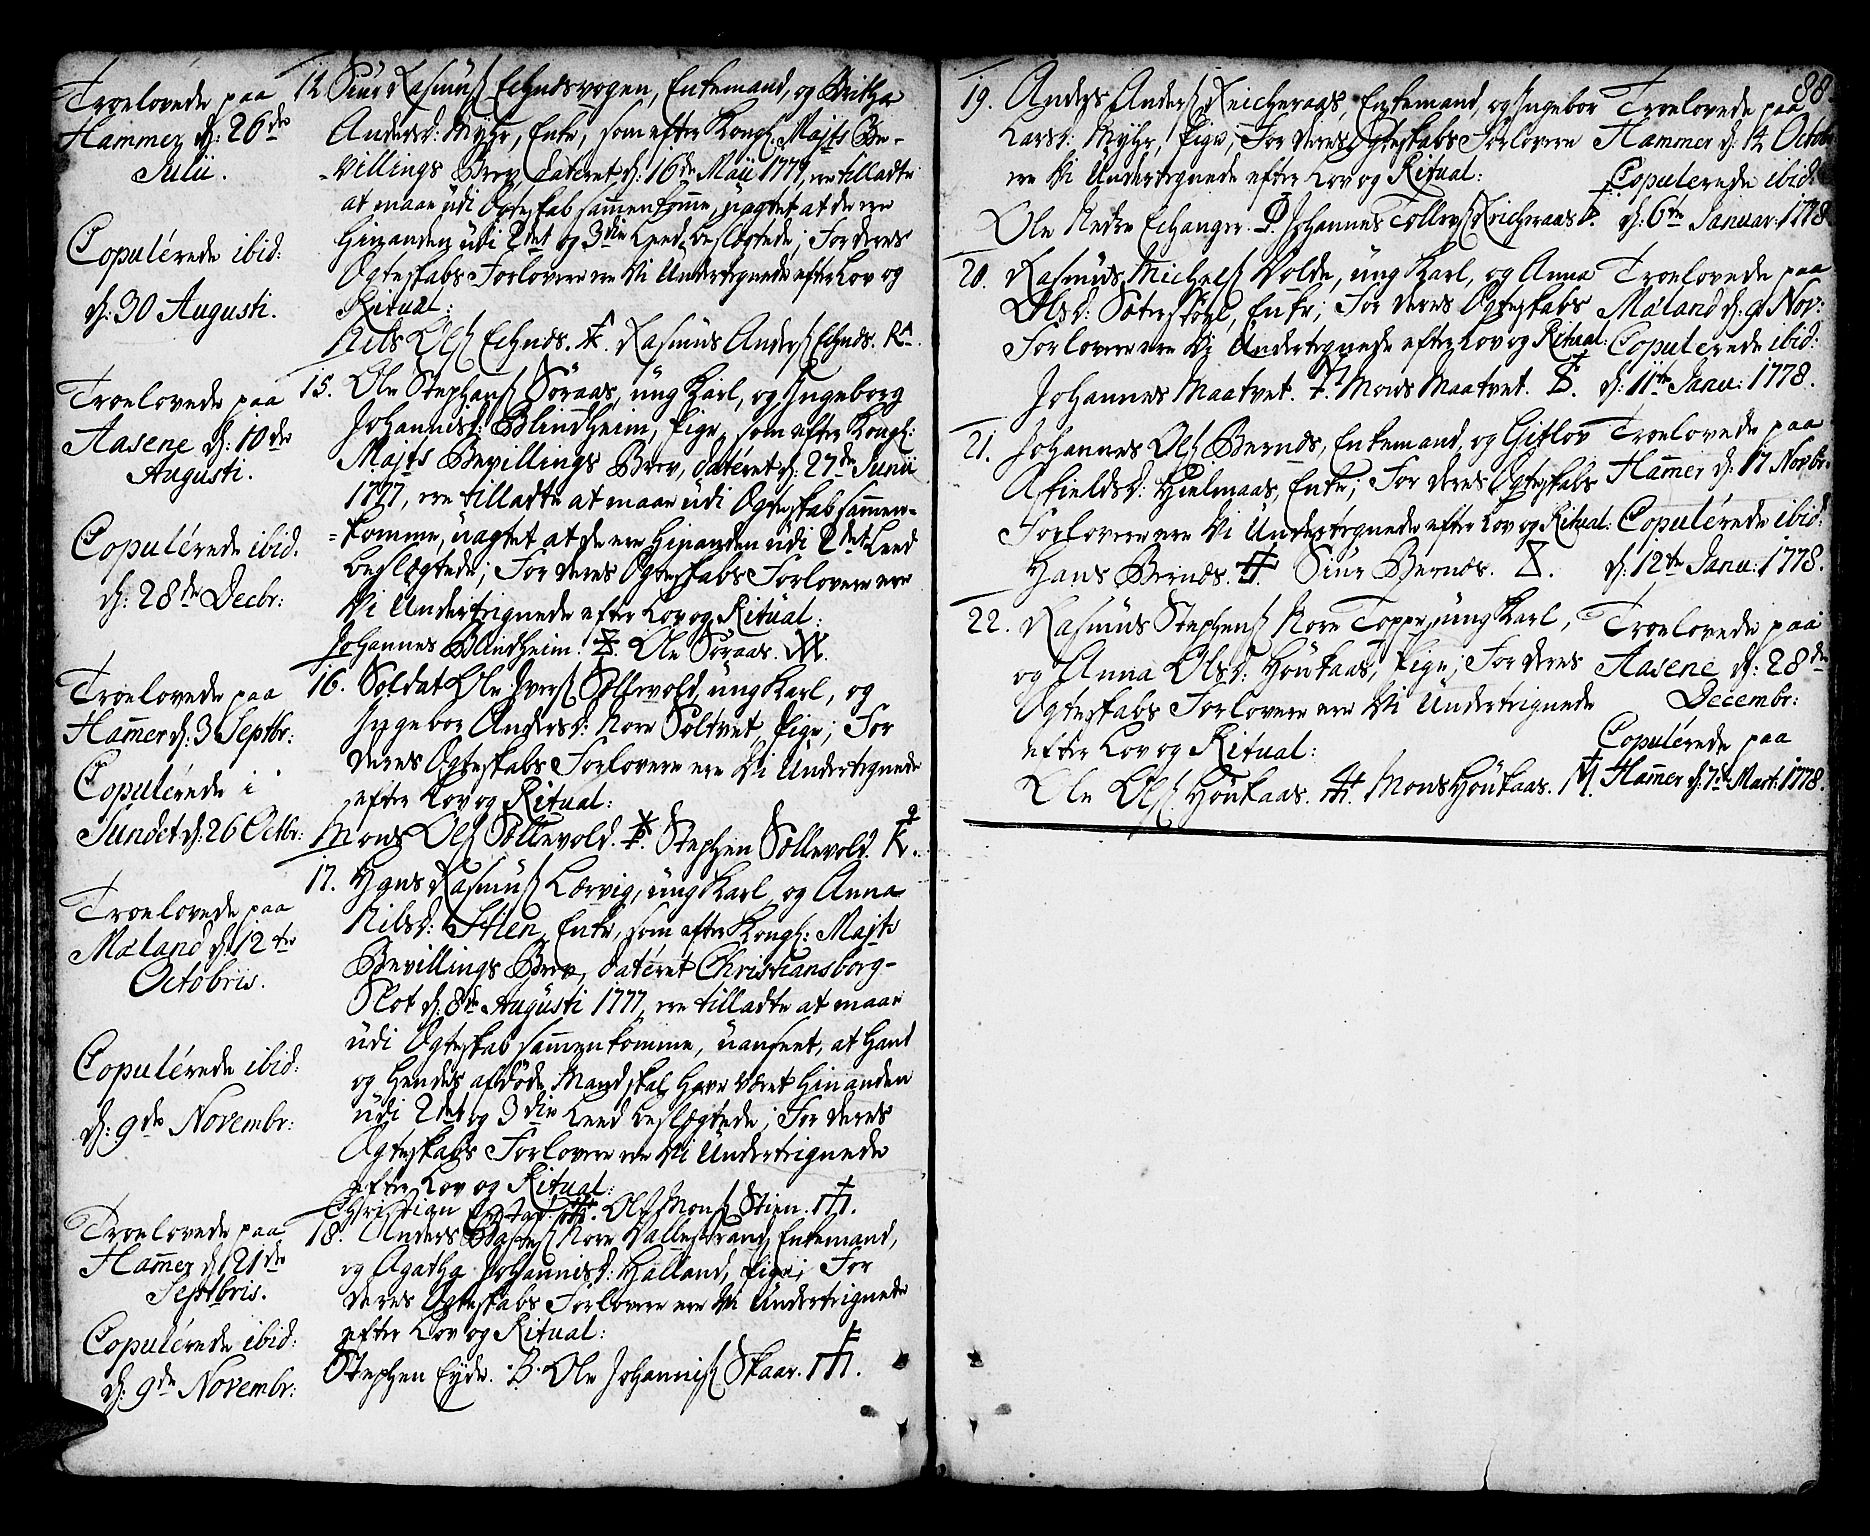 Troelovede paa
Hammer d: 26de
Julii.
Copulérede ibid:
d: 30 Augusti.
14. Siur Rasmus Echnesvogen, Enkemand, og Britha
Andersd: Myhr, Enke, som efter Kongl: Majts Be-
-villings Brev, dateret d: 16de Maii 1777, ere tilladte
at maae udi Ægteskab sammenkomme, uagtet at de ere
hinanden udi 2det og 3die Leed beslægtede; For deres
Ægteskabs Forlovere ere Vi Undertegnede efter Lov og
Ritual:
Nils Ols Echnes. Rasmus Anders Echnes. RA.
Troelovede paa
Aasene d: 10de
Augusti.
Copulérede ibid.
d: 28de Decbr:
15. Ole Stephens Söraas, ung Karl, og Ingeborg
Johannisd: Blindheim, Pige, som efter Kongl:
Majts Bevillings Brev, dateret d: 27de Junii
1777, ere tilladte at maae udi Ægteskab sammen-
-komme, uagtet at de ere hinanden udi 2det Leed
beslægtede; For deres Ægteskabs Forlovere ere
Vi Undertegnede efter Lov og Ritual:
Johannes Blindheim. Ole Söraas.
Troelovede paa
Hamer d: 3 Septbr:
Copulérede i
Sundet d: 26 Octbr:
16. Soldat Ole Ivers Söllevold, ung Karl, og
Ingebor Andersd: Nore Soltvet, Pige; For
deres Ægteskabs Forlovere ere Vi Undertegnede
efter Lov og Ritual:
Mons Ols Söllevold. Stephen Söllevold.
Troelovede paa
Mæland d: 12te
Octobris.
Copulérede ibid:
d: 9de Novembr:
17. Hans Rasmus Lervig, ung Karl og Anna
Nilsd: Stien, Enke, som efter Kongl: Majts
Bevillings Brev, dateret Christiansborg-
Slot d: 8de Augusti 1777, ere tilladte at maae
udi Ægteskab sammenkomme, uanseet, at Hand
og hendes afdöde Mand skal have været hinanden
udi 2det og 3die Leed beslægtede; For deres
Ægteskabs Forlovere ere Vi Undertegnede
efter Lov og Ritual:
Christian Ols Mons Stien.
Troelovede paa
Hamer d: 21de
Septbris.
Copulérede ibid:
d: 9de Novembr:
18. Anders Nore Vallestrand, Enkemand,
og Agatha Johannisd: Hälland, Pige; For
deres Ægteskabs Forlovere ere Vi Undertegnede
efter Lov og Ritual:
Stephen Eyde. B. Ole Johannis Skaar.
88.
19. Anders Anders Reicheraas, Enkemand, og Ingebor
Larsd: Myhr, Pige, For deres Ægteskabs Forlovere
ere Vi Undertegnede efter Lov og Ritual:
Ole Nedre Echanger. Johannes Tollevs Reicheraas.
Troelovede paa
Hammer d: 14 Octob
Copulerede ibid:
d: 6te Januar: 1778
20. Rasmus Michels Volde, ung Karl, og Anna
Olsd: Sæterstöel, Enke; For deres Ægteskabs
Forlovere ere Vi Undertegnede efter Lov og Ritual:
Johannes Maatvet. Mons Maatvet.
Troelovede paa
Mæland d: 9 Nov:
Copulerede ibid:
d: 11te Janu: 1778.
21. Johannes Ols Bernæs, Enkemand, og Gitlov
Afieldsd: Hielmaas, Enke; For deres Ægteskabs
Forlovere ere Vi Undertegnede efter Lov og Ritual:
Hans Bernæs. Siur Bernæs.
Troelovede paa
Hamer d: 17 Novbr.
Copulérede ibid:
d: 12te Janu: 1778.
22. Rasmus Stephens Nore Toppe, ung Karl,
og Anna Olsd: Höukaas, Pige; For deres
Ægteskabs Forlovere ere Vi Undertegnede
efter Lov og Ritual:
Ole Ols Höukaas. Mons Höukaas.
Troelovede paa
Aasene d: 28de
Decembr:
Copulérede paa
Hamer d: 7de Mart: 1778.